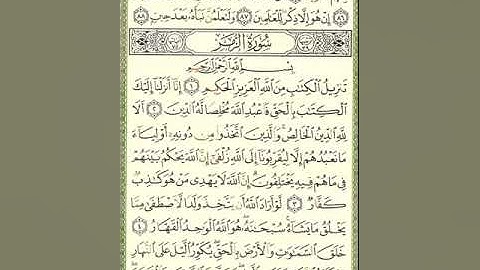 ٨٦ إِنْ هُوَ إِلَّا ذِكْرٌ لِّلْعَٰلَمِينَ ٨٧ وَلَتَعْلَمُنَّ نَبَأَهُۥ بَعْدَ حِينٍۭ ٨٨
سُورَةُ الزُّمَرِ
بِسْمِ ٱللَّهِ ٱلرَّحْمَٰنِ ٱلرَّحِيمِ
تَنزِيلُ ٱلْكِتَٰبِ مِنَ ٱللَّهِ ٱلْعَزِيزِ ٱلْحَكِيمِ ١ إِنَّآ أَنزَلْنَآ إِلَيْكَ
ٱلْكِتَٰبَ بِٱلْحَقِّ فَٱعْبُدِ ٱللَّهَ مُخْلِصًا لَّهُ ٱلدِّينَ ٢ أَلَا
لِلَّهِ ٱلدِّينُ ٱلْخَالِصُ وَٱلَّذِينَ ٱتَّخَذُوا۟ مِن دُونِهِۦٓ أَوْلِيَآءَ
مَا نَعْبُدُهُمْ إِلَّا لِيُقَرِّبُونَآ إِلَى ٱللَّهِ زُلْفَىٰٓ إِنَّ ٱللَّهَ يَحْكُمُ بَيْنَهُمْ
فِى مَا هُمْ فِيهِ يَخْتَلِفُونَ إِنَّ ٱللَّهَ لَا يَهْدِى مَنْ هُوَ كَٰذِبٌ
كَفَّارٌ ٣ لَّوْ أَرَادَ ٱللَّهُ أَن يَتَّخِذَ وَلَدًا لَّٱصْطَفَىٰ مِمَّا
يَخْلُقُ مَا يَشَآءُ سُبْحَٰنَهُۥ هُوَ ٱللَّهُ ٱلْوَٰحِدُ ٱلْقَهَّارُ ٤
خَلَقَ ٱلسَّمَٰوَٰتِ وَٱلْأَرْضَ بِٱلْحَقِّ يُكَوِّرُ ٱلَّيْلَ عَلَى ٱلنَّهَارِ